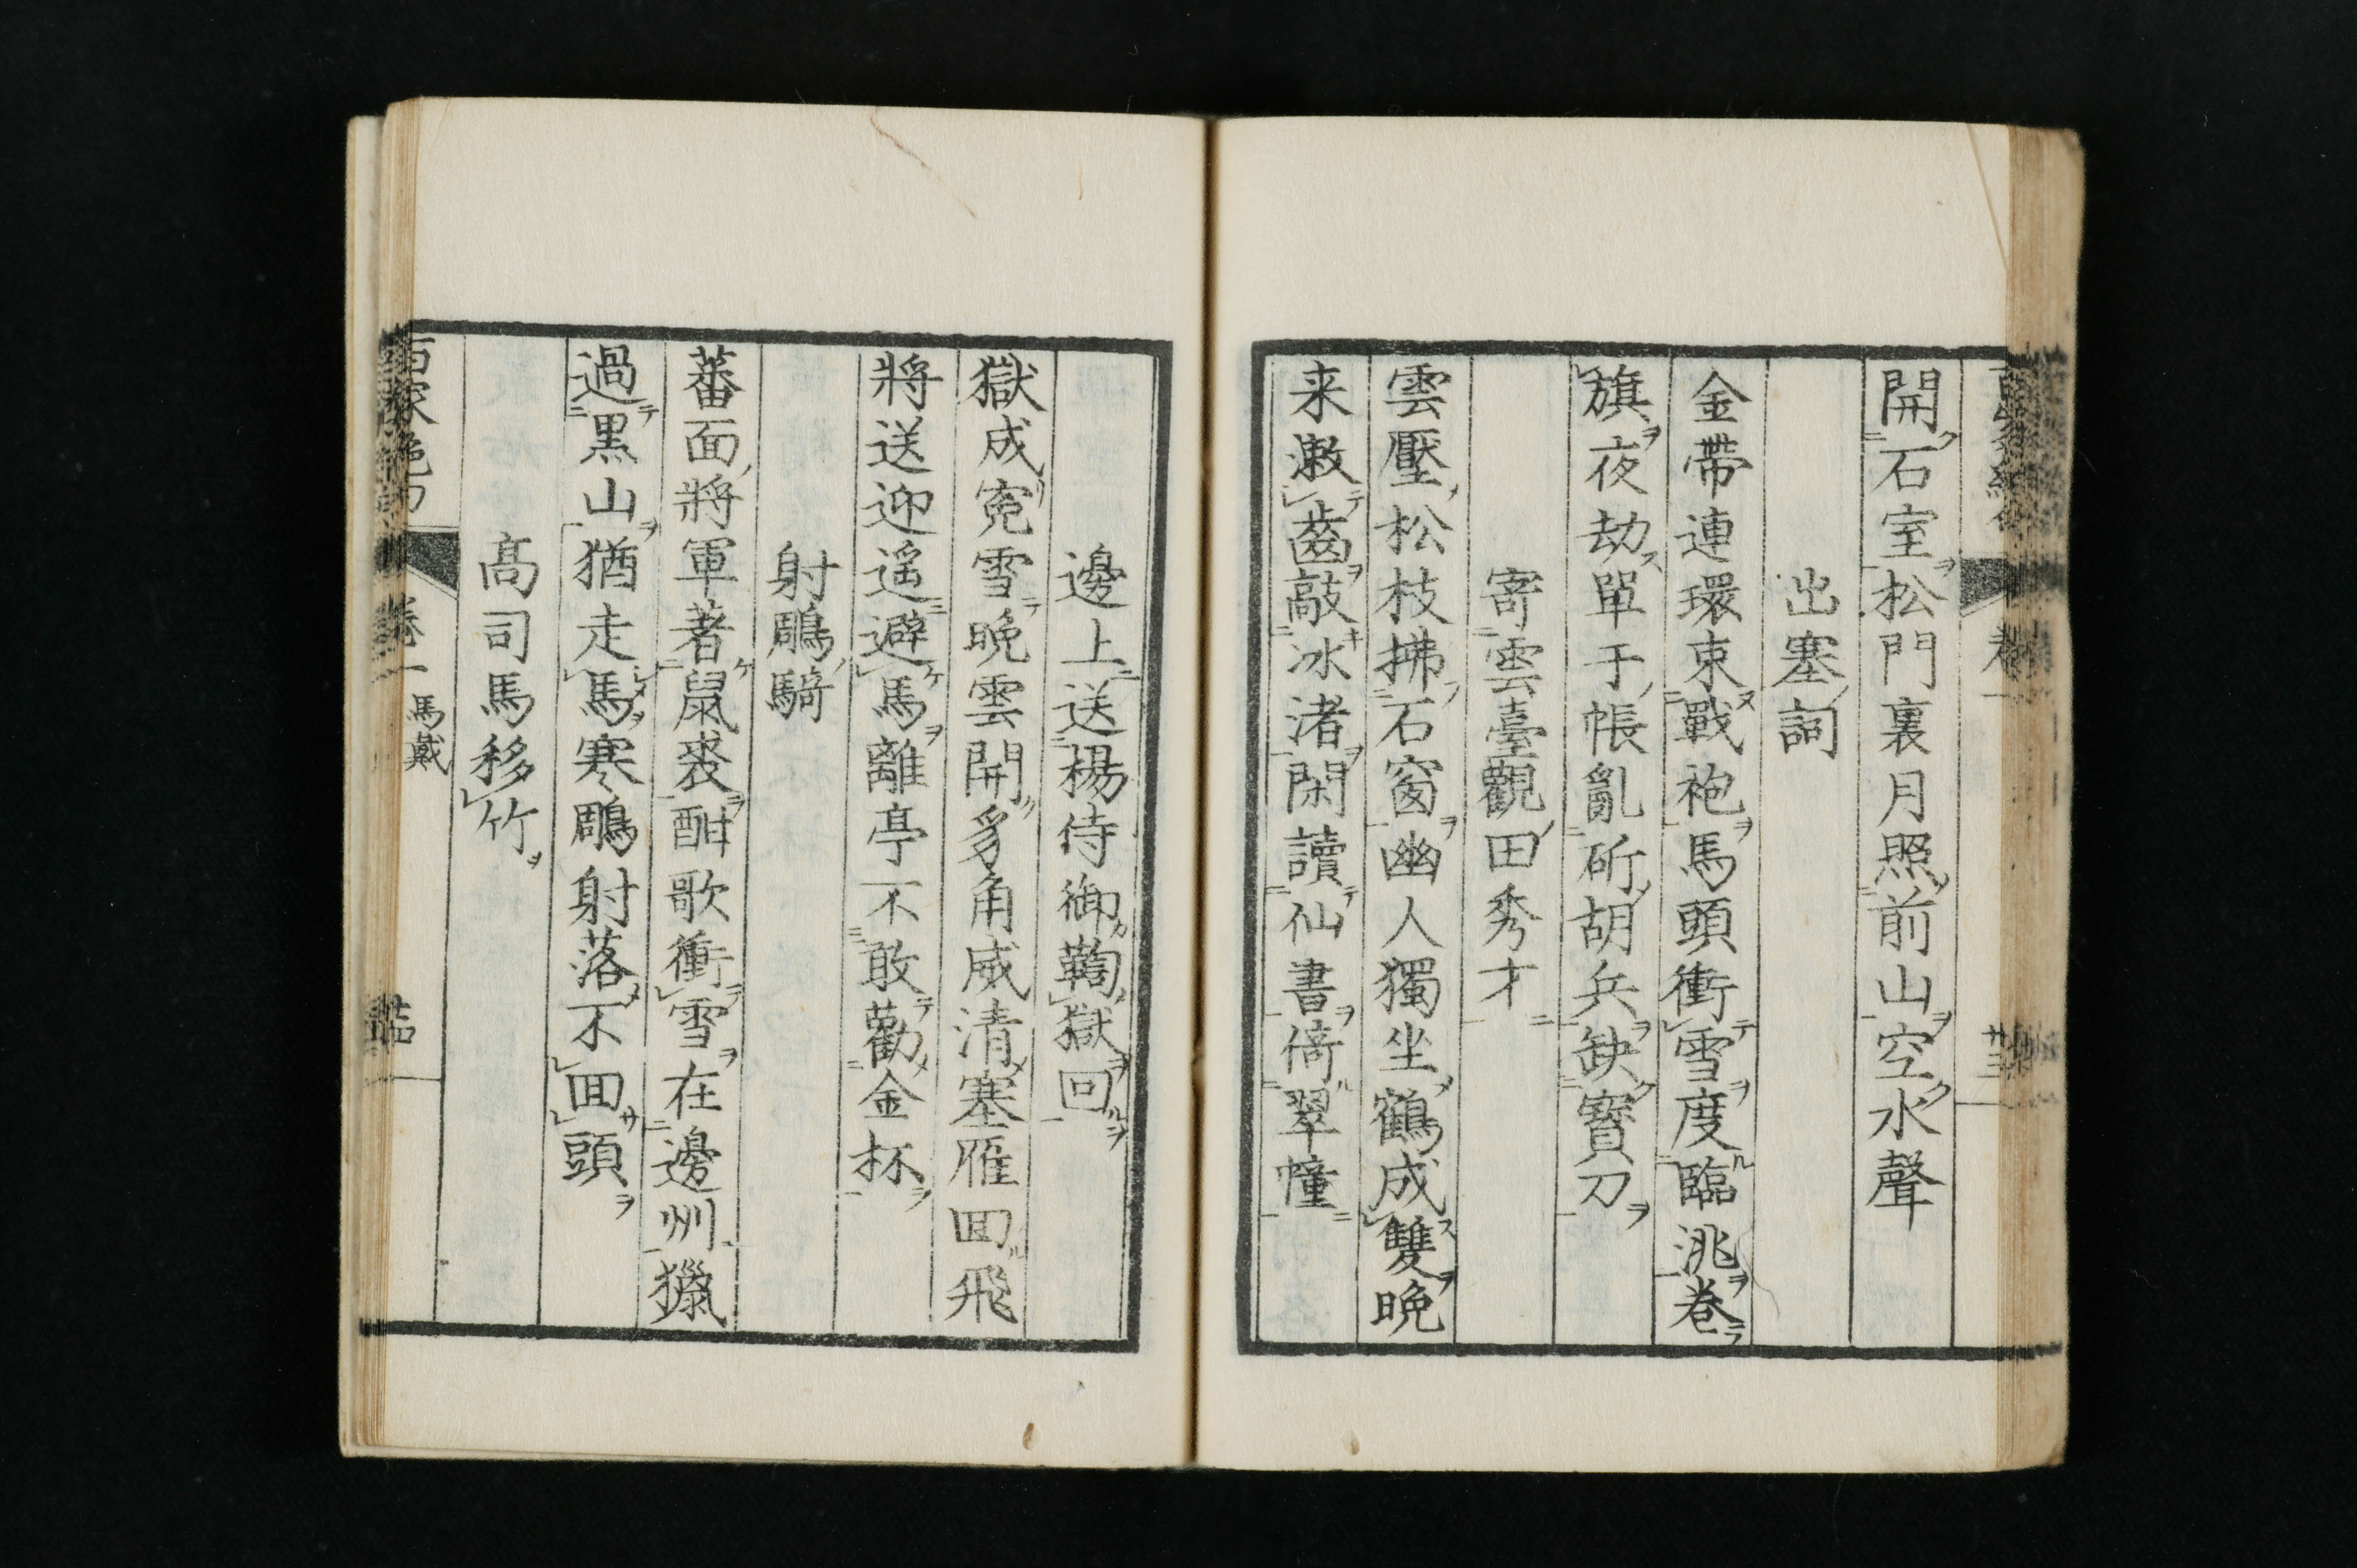 開石室松門裏月照前山空水聲
出塞詞
金帶連環束戰袍馬頭衝雪度臨洮卷
旗夜劫單于帳亂斫胡兵缺寶刀
寄雲臺觀田秀才
雲壓松枝拂石窗幽人獨坐鶴成雙晩
来漱齒敲冰渚閑讀仙書倚翠幢
邊上送楊侍御鞫獄回
獄成寃雪晩雲開豸角威清塞雁回飛
將送迎遥避馬離亭不敢勸金杯
射鵰騎
蕃面將軍著鼠裘酣歌衝雪在邊州獵
過黒山猶走馬寒鵰射落不回頭
髙司馬移竹
卷一 馬戴